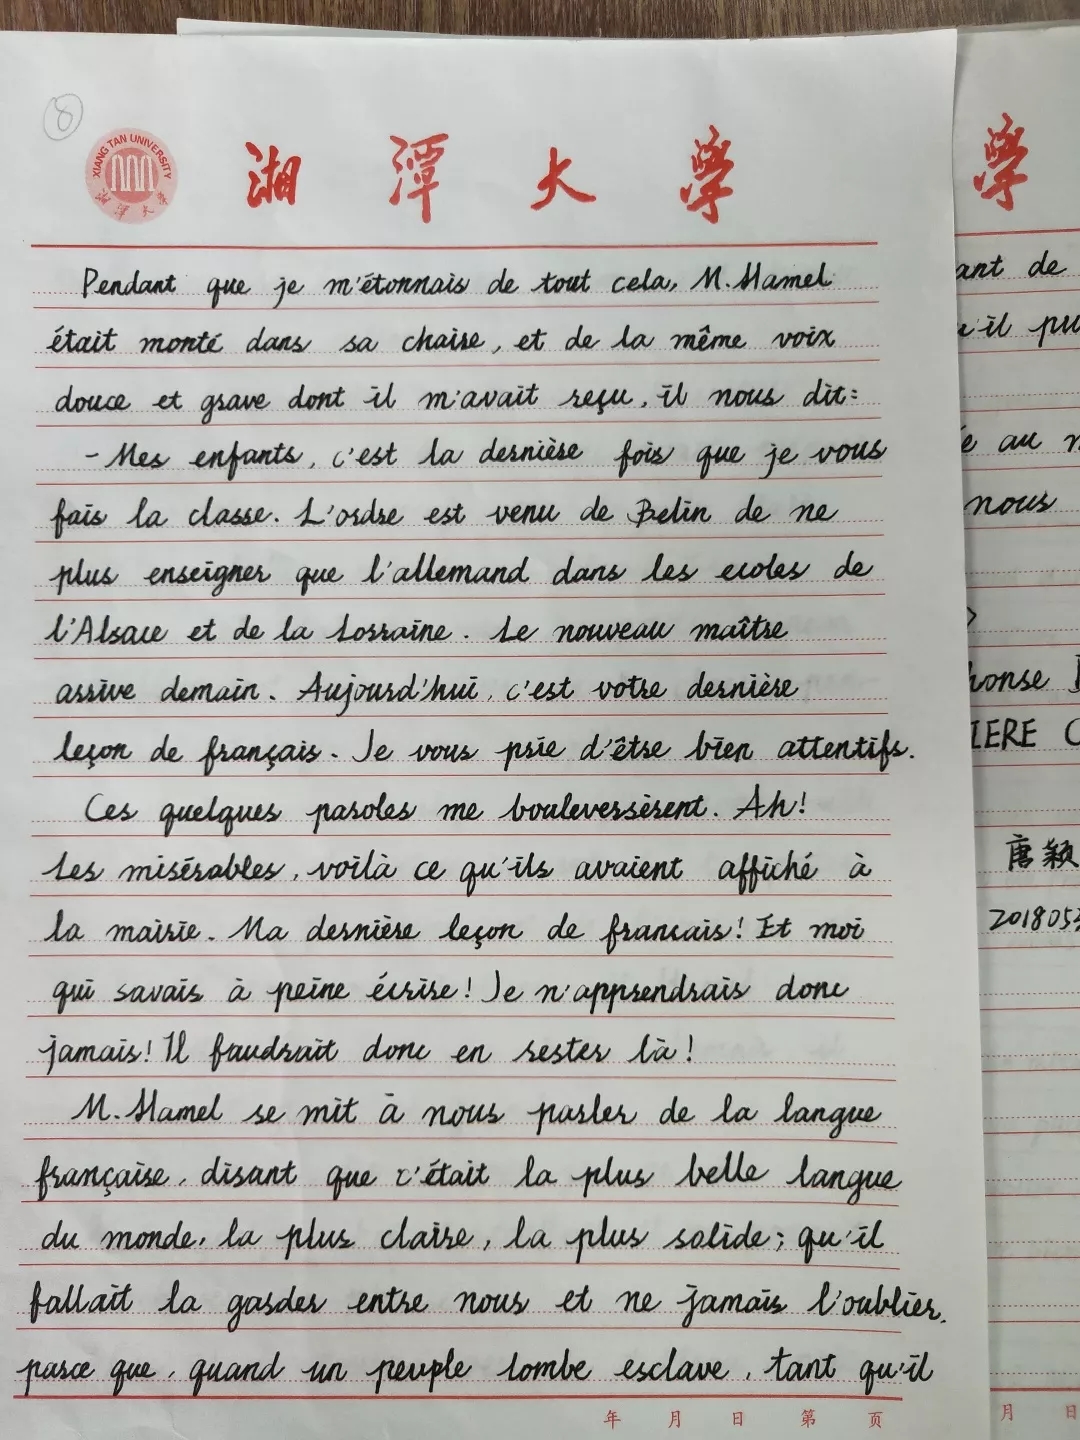 8
XIANG TAN UNIVERSITY
湘潭大學
湘潭大學
Pendant que je m'étonnais de tout cela, M. Hamel
était monté dans sa chaire, et de la même voix
douce et grave dont il m'avait reçu, il nous dit:
- Mes enfants, c'est la dernière fois que je vous
fais la classe. L'ordre est venu de Belin de ne
plus enseigner que l'allemand dans les ecoles de
l'Alsace et de la Lorraine. Le nouveau maître
arrive demain. Aujourd'hui, c'est votre dernière
leçon de français. Je vous prie d'être bien attentifs.
Ces quelques paroles me bouleversèrent. Ah!
Les misérables, voilà ce qu'ils avaient affiché à
la mairie. Ma dernière leçon de francais! Et moi
qui savais à peine écrire! Je n'apprendrais donc
jamais! Il faudrait donc en rester là!
M. Hamel se mit à nous parler de la langue
française, disant que c'était la plus belle langue
du monde, la plus claire, la plus solide; qu'il
fallait la garder entre nous et ne jamais l'oublier,
parce que, quand un peuple tombe esclave, tant qu'il
年 月 日 第 页
學
ant de
'il pu
au n
nous
honse
IERE C
唐颖
201805
月 日